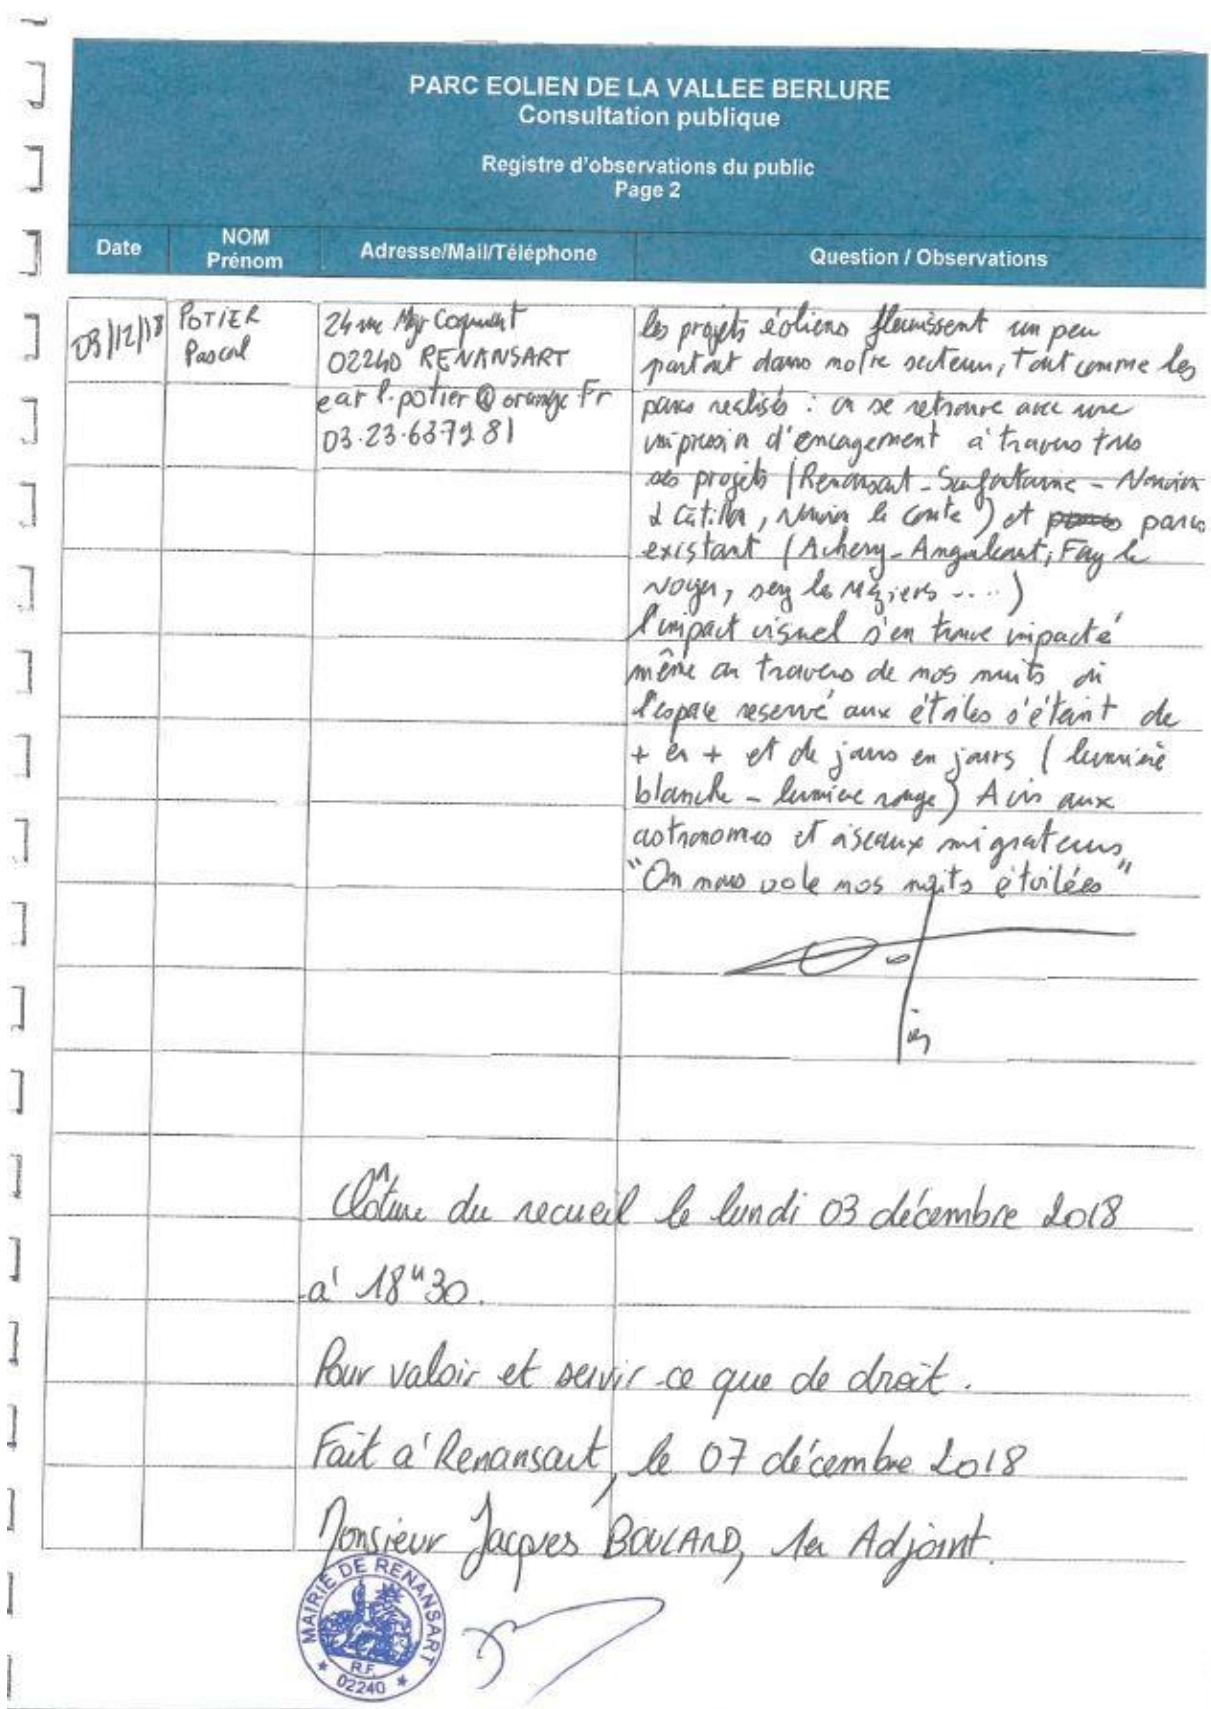 PARC EOLIEN DE LA VALLEE BERLURE
Consultation publique
Registre d'observations du public
Page 2
Date
NOM
Prénom
Adresse/Mail/Téléphone
Question / Observations
03/12/18
POTIER
Pascal
24 rue Mgr Coquart
02240 RENANSART
earl.potier@orange.Fr
03.23.637981
les projets éoliens fleurissent un peu
partout dans notre secteur, tout comme les
parcs realisés : on se retrouve avec une
impression d'encagement à travers tous
ces projets (Renansart - Surfontaine - Nouvion
& Catillon, Nouvion le comte) et parcs
existant (Achery - Anguilcourt, Fay le
Noyer, sery les Mézières ....)
l'impact visuel s'en trouve impacté
même au travers de nos nuits où
l'espace reservé aux étoiles s'éteint de
+ en + et de jours en jours (lumière
blanche - lumière rouge) Avis aux
astronomes et oiseaux migrateurs
"On nous vole nos nuits étoilées"
Clôture du recueil le lundi 03 décembre 2018
à 18H30.
Pour valoir et servir ce que de droit.
Fait à Renansart, le 07 décembre 2018
Monsieur Jacques BOULARD, 1er Adjoint.
MAIRIE DE RENANSART
R.F.
* 02240 *